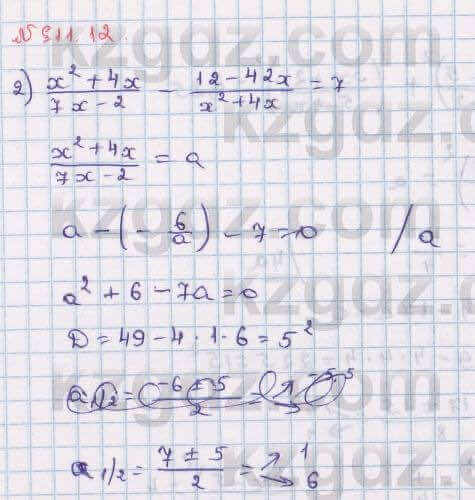 № 911.12.
2) x²+4x / 7x-2 - 12-42x / x²+4x = 7
x²+4x / 7x-2 = a
a - (- 6/a) - 7 = 0 /a
a² + 6 - 7a = 0
D = 49 - 4 · 1 · 6 = 5²
a 1/2 = 7 ± 5 / 2 = 1
6
kzgdz.com